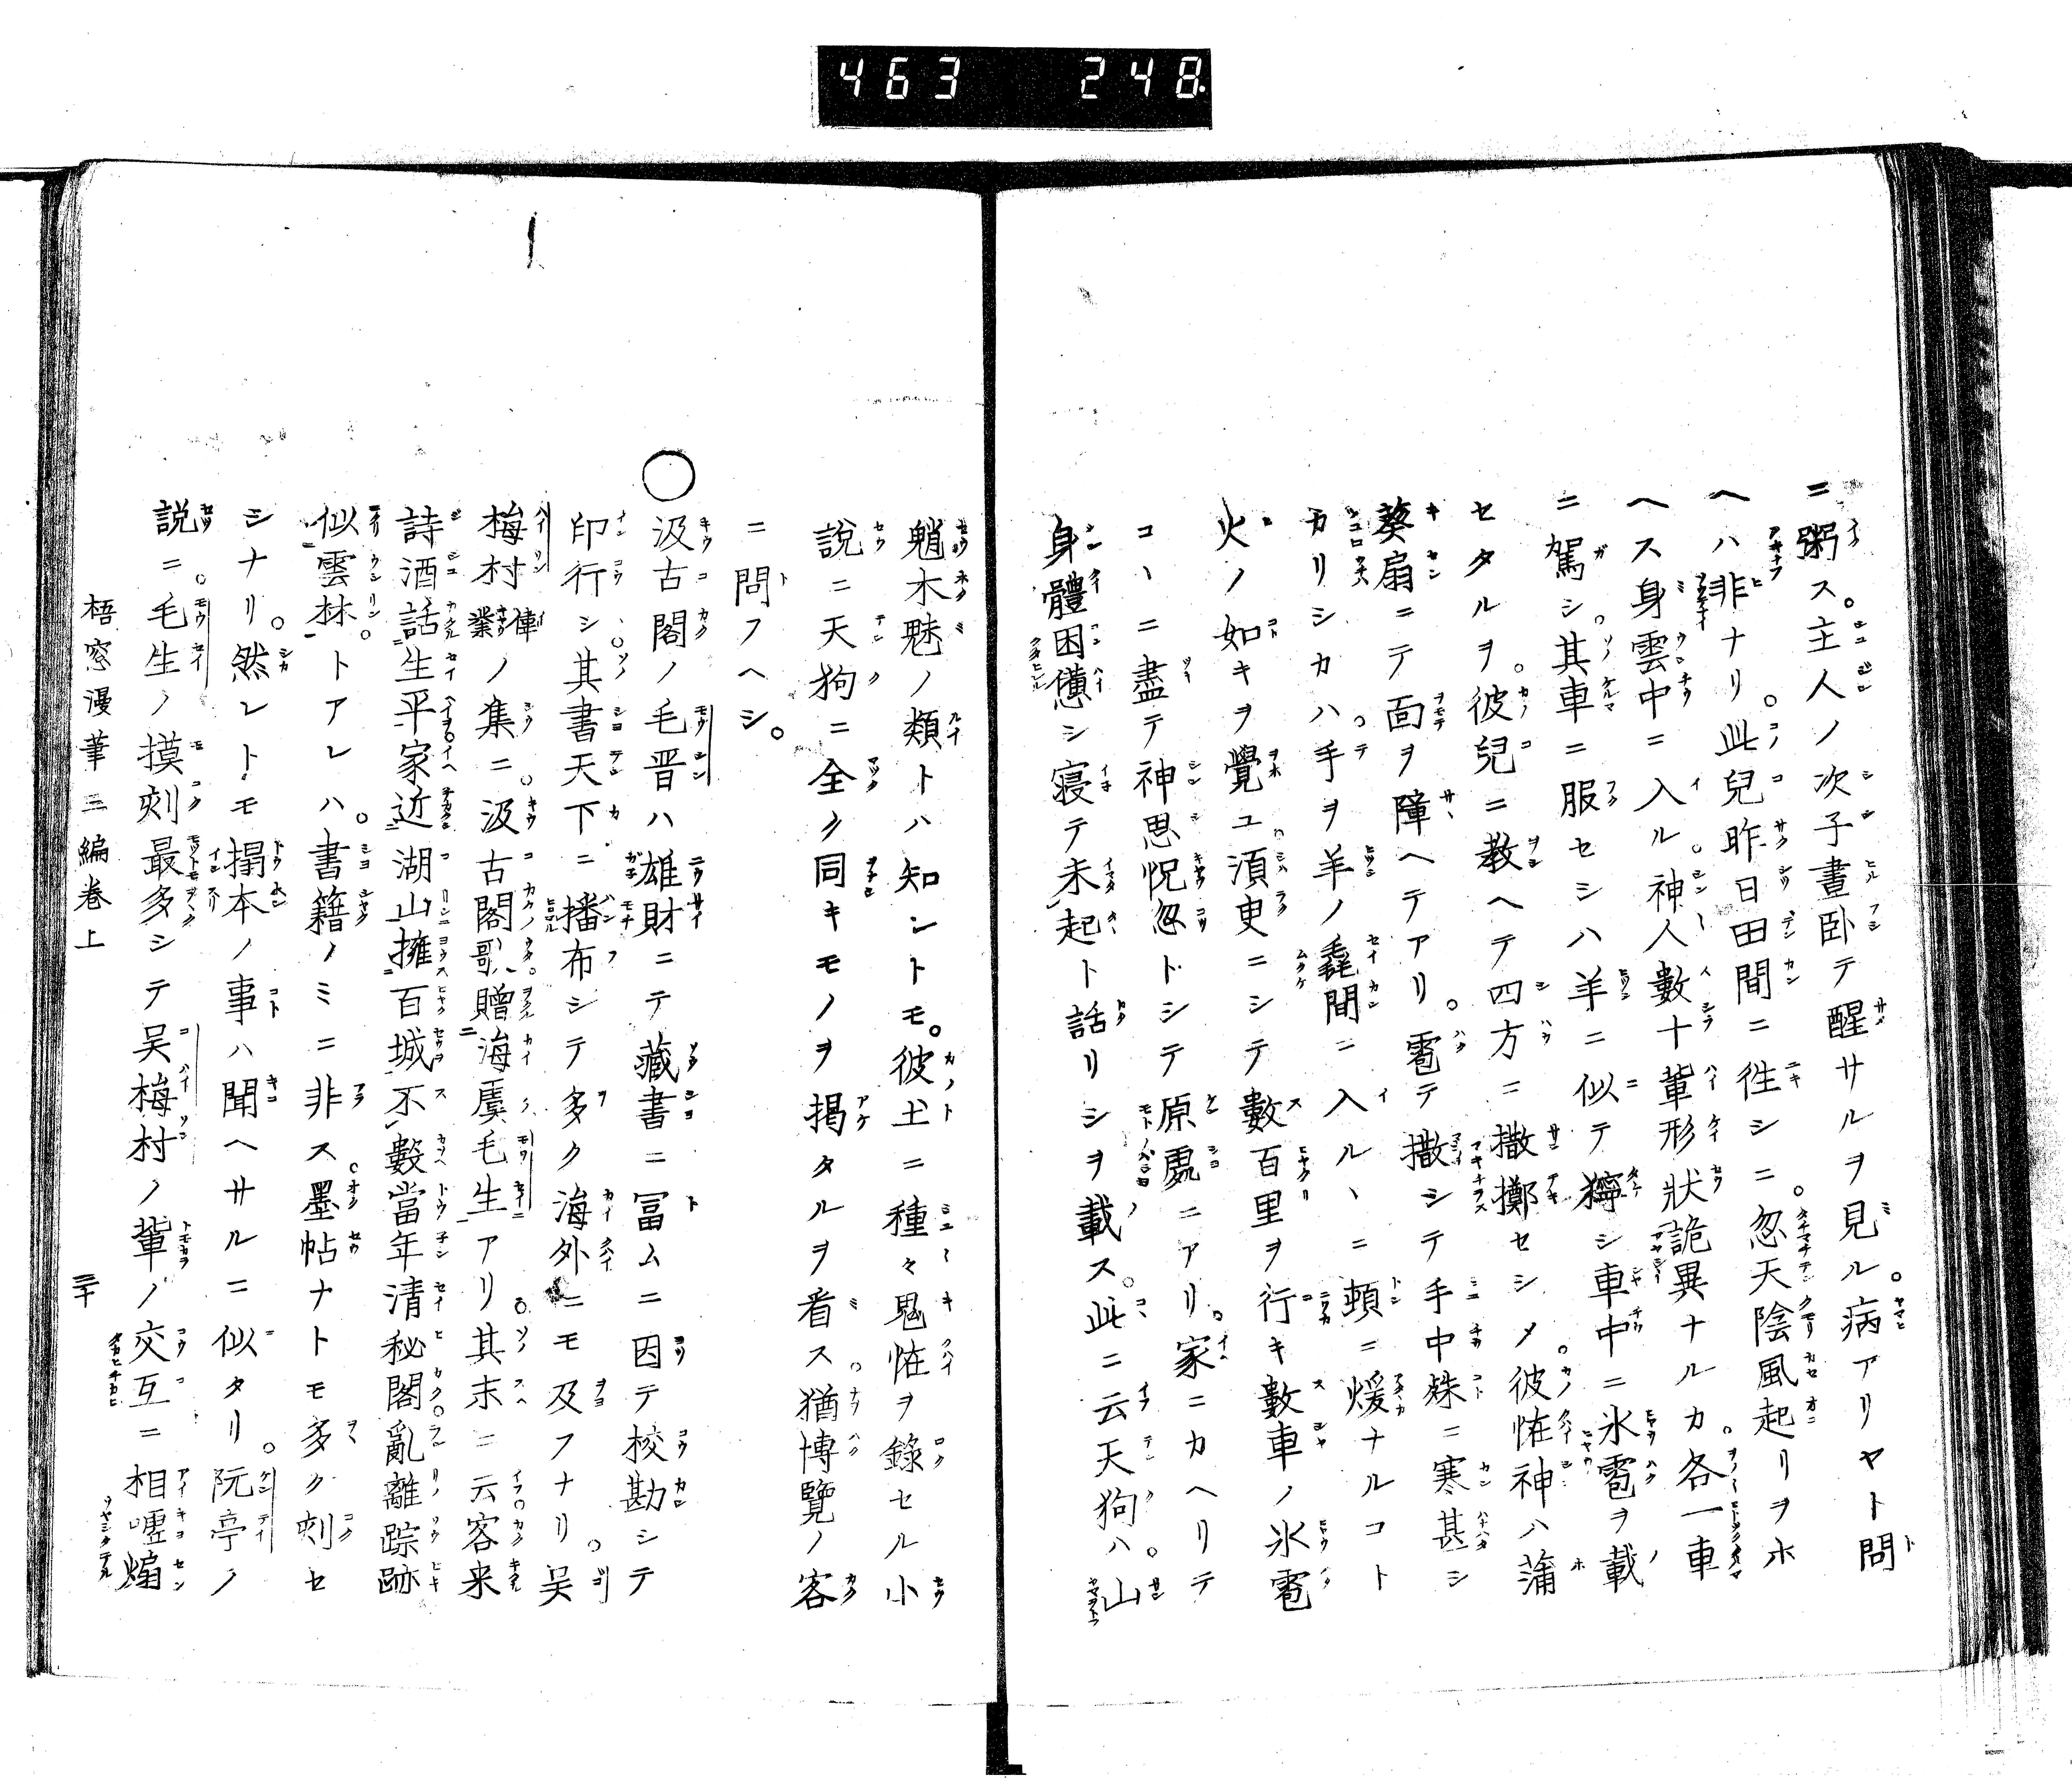 463 248
ニ粥ス。主人ノ次子晝臥テ醒サルヲ見ル。病アリヤト問
ヘハ非ナリ。此兒昨日田間ニ徃シニ。忽天陰風起リヲホ
ヘス身雲中ニ入ル。神人數十軰形狀詭異ナルカ。各一車
ニ駕シ。其車ニ服セシハ羊ニ似テ獰シ車中ニ氷雹ヲ載
セタルヲ。彼兒ニ教ヘテ四方ニ撒擲セシメ。彼怪神ハ蒲
葵扇ニテ面ヲ障ヘテアリ。雹テ撒シテ手中殊ニ寒甚シ
カリシカハ。手ヲ羊ノ毳間ニ入ルヽニ頓ニ煖ナルコト
火ノ如キヲ覺ユ。須臾ニシテ數百里ヲ行キ數車ノ氷雹
コヽニ盡テ神思怳忽トシテ原處ニアリ。家ニカヘリテ
身體困憊シ寝テ未起ト話リシヲ載ス。此ニ云天狗ハ。山
魈木魅ノ類トハ知ントモ。彼土ニ種々鬼怪ヲ錄セル小
說ニ天狗ニ全ク同キモノヲ掲タルヲ看ス。猶博覽ノ客
ニ問フヘシ。
○汲古閣ノ毛晋ハ雄財ニテ藏書ニ冨ムニ因テ校勘シテ
印行シ。其書天下ニ播布シテ多ク海外ニモ及フナリ。吴
梅村偉業ノ集ニ。汲古閣歌。贈海虞毛生アリ。其末ニ云客来
詩酒話生平家近湖山擁百城不數當年清秘閣亂離踪跡
似雲林。トアレハ。書籍ノミニ非ス。墨帖ナトモ多ク刻セ
シナリ。然レトモ搨本ノ事ハ聞ヘサルニ似タリ。阮亭ノ
說ニ。毛生ノ摸刻最多シテ吴梅村ノ軰ノ交互ニ相嘘煽
梧窓漫筆三編卷上
三十